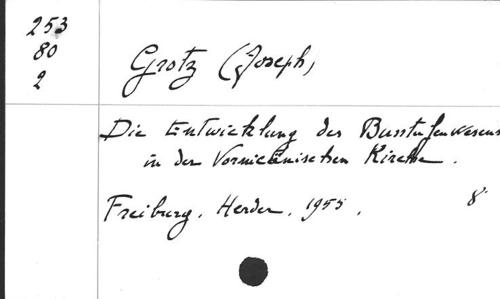 253
80
2
Grotz (Joseph)
Die Entwicklung des Busstufenwesens
in der Vornicänischen Kirche.
Freiburg. Herder. 1955. 8°